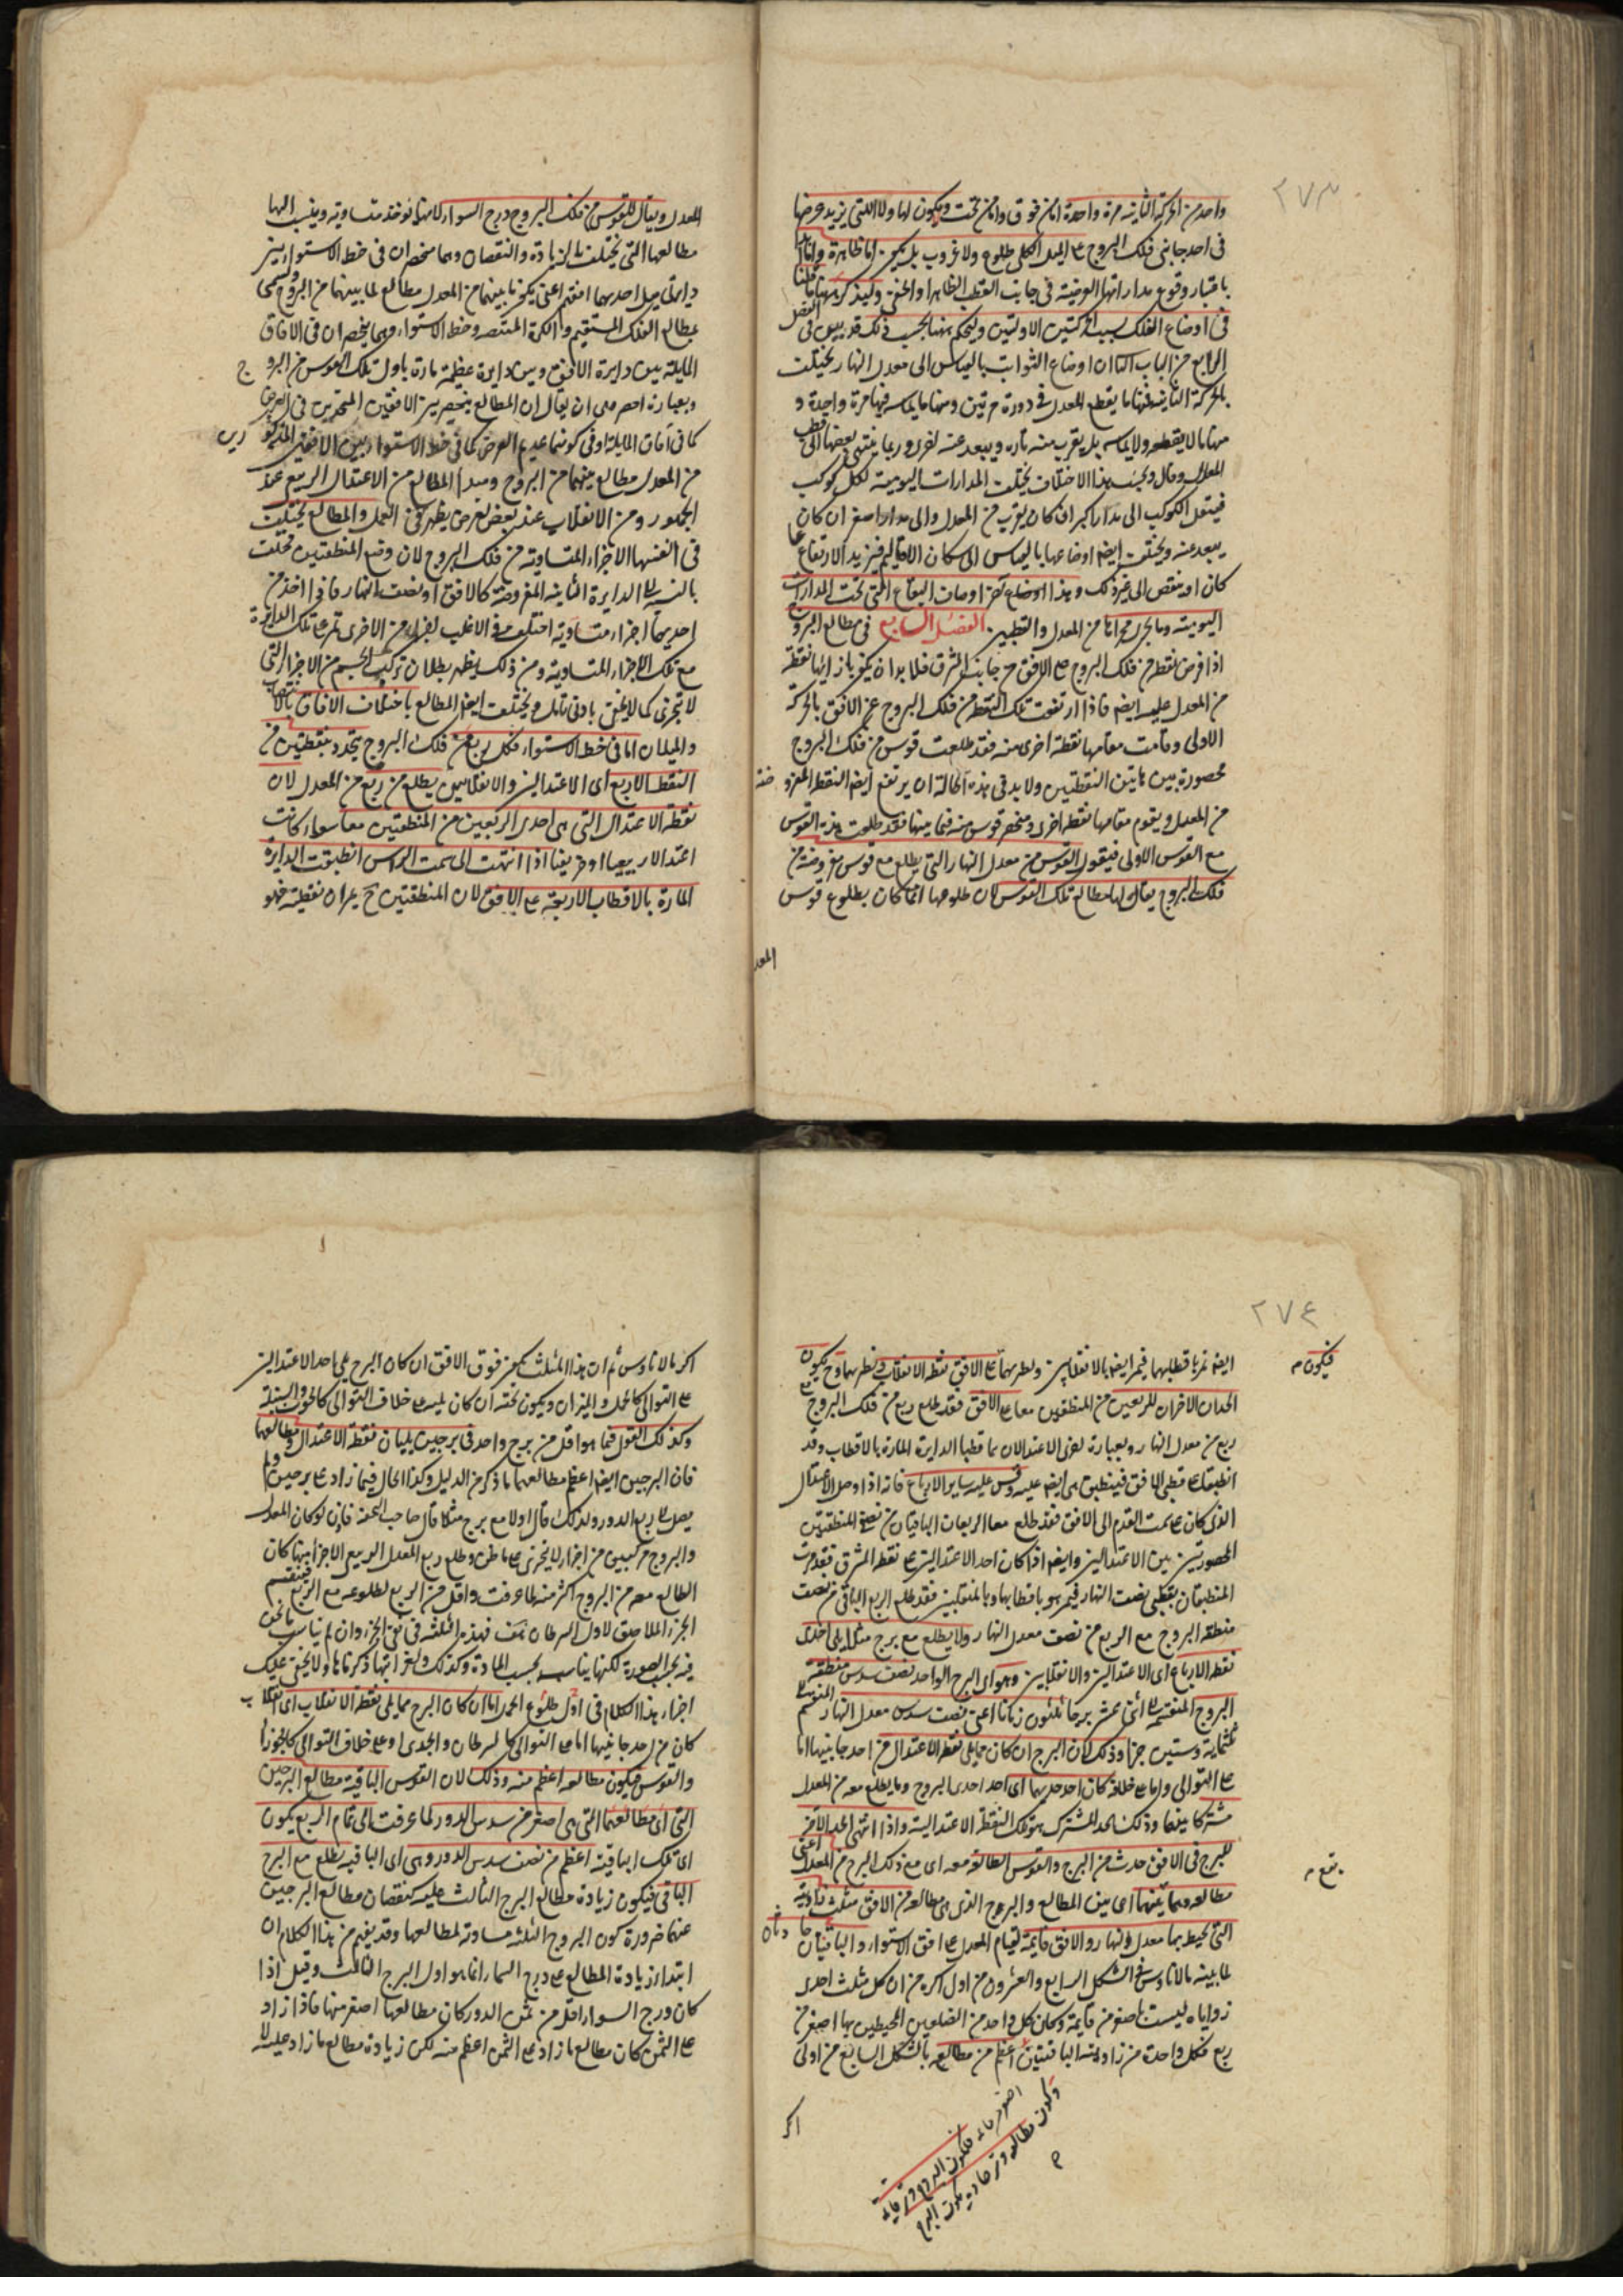 ٢٧٣
واحد من الحركة الثانية مرة واحدة اما من فوق واما من تحت ويكون لها ولا اللتى يزيد عرضها
فى احد جانبى فلك البروج على الميل الكلى طلوع ولا غروب بل يكون اما ظاهرة واما
باعتبار وقوع مداراتها العرضية فى جانب القطب الظاهر او الخفى وليذكر ههنا ما قلنا
فى اوضاع الفلك بسبب الحركتين الاوليين وليحكم ههنا بحسب ذلك قد بين فى الفصل
الرابع من الباب الثانى ان اوضاع الثوابت بالقياس الى معدل النهار يختلف
بالحركة الثانية فمنها ما يقطع المعدل فى دورة مرتين ومنها ما يماسه فيها مرة واحدة و
منها ما لا يقطعه ولا يماسه بل يقرب منه تارة ويبعد عنه اخرى وربما ينتهى بعضها الى قطب
المعدل وقال وبحسب هذا الاختلاف يختلف المدارات اليومية لكل كوكب
فينتقل الكوكب الى مدار اكبر ان كان يقرب من المعدل والى مدار اصغر ان كان
يبعد عنه ويختلف ايضا اوضاعها بالقياس الى سكان الاقاليم فيزيد الارتفاع عما
كان او ينقص الى غير ذلك وهذا اوضاع آخر اوصاف البقاع التى تحت المدارات
اليومية وما يجرى مجراها من المعدل والقطبين الفصل السابع فى مطالع البروج
اذا فرض نقطة من فلك البروج على الافق من جانب المشرق فلا بد ان يكون بازائها نقطة
من المعدل عليه ايضا فاذا ارتفعت تلك النقطة من فلك البروج عن الافق بالحركة
الاولى وقامت مقامها نقطة اخرى منه فقد طلعت قوس من فلك البروج
محصورة بين هاتين النقطتين ولا بد فى هذه الحالة ان يرتفع ايضا النقطة المفروضة
من المعدل ويقوم مقامها نقطة اخرى وينحصر قوس منه فيما بينهما فقد طلعت هذه القوس
مع القوس الاولى فيقول القوس من معدل النهار التى يطلع مع قوس مفروضة من
فلك البروج يقال لها مطالع تلك القوس لان طلوعها انما كان بطلوع قوس
المعد
المعدل ويقال للقوس من فلك البروج درج السواء لانها توخذ متساوية وينسب اليها
مطالعها التى يختلف بالزيادة والنقصان وهما منحصران فى خط الاستواء بين
دايرتى ميل احديهما افقه اعنى يكون ما بينهما من المعدل مطالع لما بينهما من البروج وتسمى
بمطالع الفلك المستقيم والكرة المنتصبة وخط الاستواء وهما ينحصران فى الافاق
المايلة بين دايرة الافق وبين دايرة عظيمة مارة باول تلك القوس من البروج
وبعبارة اخصر هى ان يقال ان المطالع ينحصر بين الافقين المتحدين فى العرض
كما فى آفاق المايلة او فى كونهما عديم العرض كما فى خط الاستواء وبين الافقين المذكورين
من المعدل مطالع بينهما من البروج ومبدأ المطالع من الاعتدال الربيعى عند
الجمهور ومن الانقلاب عند بعض لغرض يظهر فى العمل والمطالع يختلف
فى انفسها الاجزاء المتساوية من فلك البروج لان وضع المنطقتين مختلف
بالنسبة الى الدايرة الثانية المفروضة كالافق او نصف النهار فاذا اخذ من
احديهما اجزاء متساوية اختلف فى الاغلب اجزاء من الاخرى تمر على تلك الدايرة
مع تلك الاجزاء المتساوية ومن ذلك يظهر بطلان تركب الجسم من الاجزاء التى
لا تتجزى كما لا يخفى بادنى تأمل ويختلف ايضا المطالع باختلاف الافاق بالانتصاب
والميلان اما فى خط الاستواء فكل ربع من فلك البروج يتحدد بنقطتين من
النقط الاربع اى الاعتدالين والانقلابين يطلع من ربع من المعدل لان
نقطة الاعتدال التى هى احدى الربعين من المنطقتين معا سواء كانت
اعتدالا ربيعيا او خريفيا اذا انتهت الى سمت الراس انطبقت الدايرة
المارة بالاقطاب الاربعة على الافق لان المنطقتين ح يمران نقطتيه فهو
٢٧٤
ايضا تمر باقطابهما فيمر ايضا بالانقلابين ونظيرهما على الافق نقط الانقلاب ونظيرهما وح يكون
فيكون م
الحدان الاخران للربعين من المنطقتين معا على الافق فقد طلع ربع من فلك البروج مع
ربع من معدل النهار وبعبارة اخرى الاعتدالان هما قطبا الدايرة المارة بالاقطاب وقد
انطبقت على قطبى الافق فينطبق هى ايضا عليه وقس عليه ساير الارباع فانه اذا وصل الاعتدال
الذى كان على سمت القدم الى الافق فقد طلع معا الربعان الباقيان من نصفى المنطقتين
المحصورتين بين الاعتدالين وايضا اذا كان احد الاعتدالين على نقطة المشرق فقد مرت
المنطبقتان بقطبى نصف النهار فيمر هو باقطابها وبالمنقلبين فقد طلع الربع الباقى من نصف
منطقة البروج مع الربع من نصف معدل النهار ولا يطلع مع برج مثلا يلى احدى
نقط الارباع اى الاعتدالين والانقلابين وهو اى البرج الواحد نصف سدس منطقة
البروج المنقسمة الى اثنى عشر برجا ثلثون زمانا اعنى نصف سدس معدل النهار المنقسم الى
ثلثماية وستين جزءا وذلك لان البرج ان كان مما يلى نقطة الاعتدال من احد جانبيها اما
على التوالى واما على خلافه كان احد حديهما اى احد احدى البروج وما يطلع معه من المعدل
مشتركا بينهما وذلك الحد المشترك هو تلك النقطة الاعتدالية واذا انتهى الحد الآخر
للبرج فى الافق حدث من البرج والقوس الطالعة معه اى مع ذلك البرج من المعدل اعنى
يقع م
مطالعه وما بينهما اى بين المطالع والبروج الذى هى مطالعه من الافق مثلث زاويته
التى يحيط بها معدل النهار والافق قايمة لقيام المعدل على افق الاستواء والباقيتان حادتان
لما بينه مالاناوس فى الشكل الرابع والعشرون من اول اكره من ان كل مثلث احدى
زواياه ليست باصغر من قايمة وكان كل واحد من الضلعين المحيطين بها اصغر من
ربع فكل واحدة من زاويتيه الباقيتين اعظم من مطالعه بالشكل السابع من اولى
اكر
اكر مالاناوس ثم ان هذا المثلث يكون فوق الافق ان كان البرج يلى احد الاعتدالين
على التوالى كالحمل والميزان ويكون تحته ان كان يليه على خلاف التوالى كالحوت والسنبلة
وكذلك القول فيما هو اقل من برج واحد فى برجين يليان نقطة الاعتدال ومطالعهما
فان البرجين ايضا اعظم مطالعهما ما ذكر من الدليل وكذا الحال فيما زاد على برجين ولم
يصل الى ربع الدور ولذلك قال اولا مع برج مثلا قال صاحب التحفة فاذن لو كان المعدل
والبروج مركبين من اجزاء لا يتجزى على ما ظن وطلع ربع المعدل الربيع الا جزءا منها كان
الطالع معه من البروج اكثر منه لما عرفت واقل من الربع لطلوعه مع الربع فينقسم
الجزء الملاصق لاول السرطان بنصف فهذه المثلثة فى نفى الجزء وان لم يناسب ما نحن
فيه بحسب الصورة لكنها يناسبه بحسب المادة وكذلك ولغرابتها ذكرناها ولا يخفى عليك
اجزاء هذا الكلام فى اول طلوع الحمل اما ان كان البرج مما يلى نقطة الانقلاب اى انقلاب
كان من احد جانبيها اما على التوالى كالسرطان والجدى او على خلاف التوالى كالجوزاء
والقوس فيكون مطالعه اعظم منه وذلك لان القوس الباقية مطالع البرجين
التى اى مطالعهما التى هى اصغر من سدس الدور لما عرفت الى تمام الربع يكون
اى تلك الباقية اعظم من نصف سدس الدور وهى اى الباقية يطلع مع البرج
الباقى فيكون زيادة مطالع البرج الثالث عليه كنقصان مطالع البرجين
عنهما ضرورة كون البروج الثلثة مساوية لمطالعها وقد يفهم من هذا الكلام ان
ابتداء زيادة المطالع على درج السواء انما هو اول البرج الثالث وقيل اذا
كان درج السواء اقل من ثمن الدور كان مطالعها اصغر منها فاذا زاد
على الثمن كان مطالع ما زاد على الثمن اعظم منه لكن زيادة مطالع ما زاد عليه لا